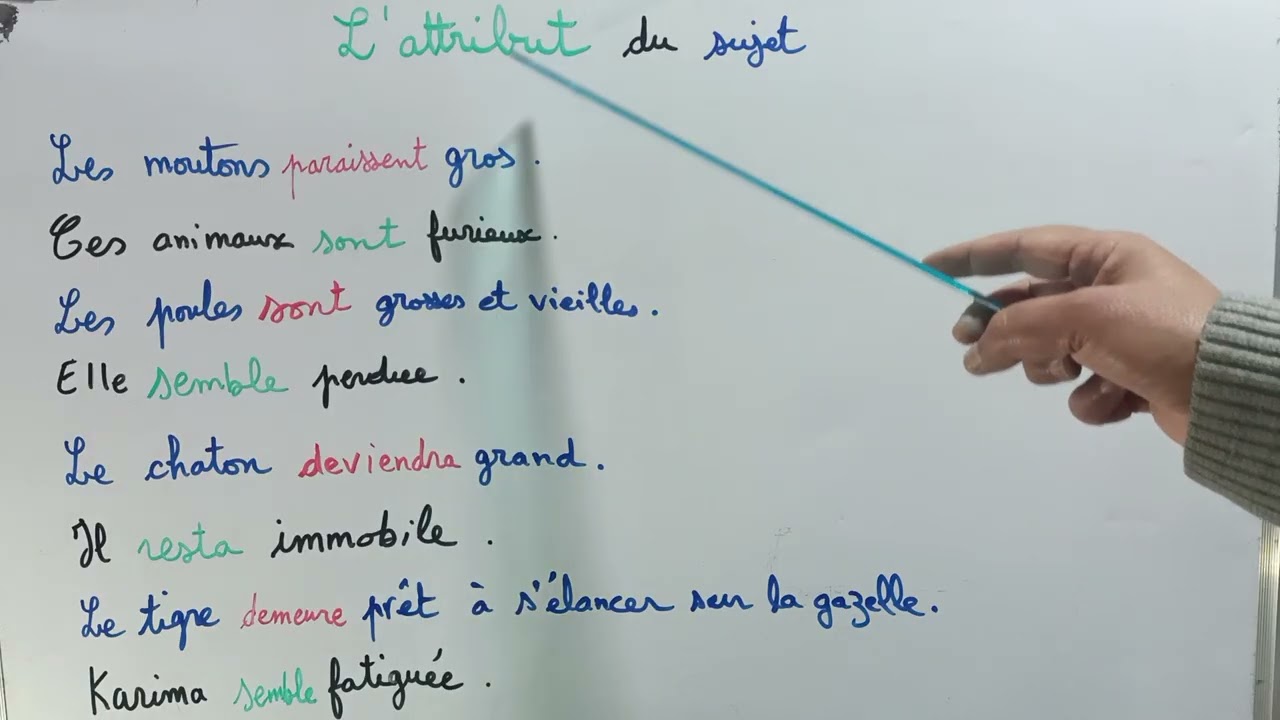 L'attribut du sujet
Les moutons paraissent gros.
Ces animaux sont furieux.
Les poules sont grosses et vieilles.
Elle semble perdue.
Le chaton deviendra grand.
Il resta immobile.
Le tigre demeure prêt à s'élancer sur la gazelle.
Karima semble fatiguée.